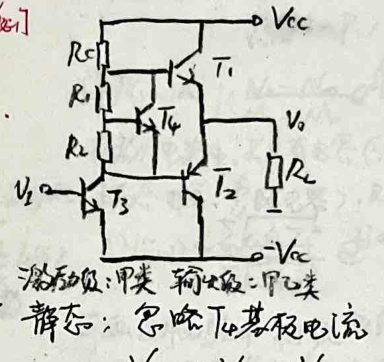 例1]
Vcc
Rc
T1
R1
T4
V0
R2
T2
RL
VI
T3
-Vcc
激励级:甲类 输出级:甲乙类
静态:忽略T4基极电流